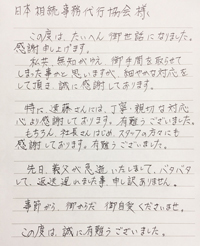 日本相続事務代行協会 様
この度は、たいへん御世話になりました。
感謝申し上げます。
私共 無知がゆえ 御手間を取らせて
しまった事かと思いますが、細やかな対応を
して頂き、誠に感謝しております。
特に、遠藤さんには、丁寧・親切な対応
心より感謝しております。有難うございました。
もちろん、社長さんはじめ、スタッフの方々にも
感謝しております。有難うございました。
先日、義父が急逝いたしまして、バタバタ
して、返送遅れました事、申し訳ありません。
季節から、御からだ 御自愛くださいませ。
この度は、誠に有難うございました。